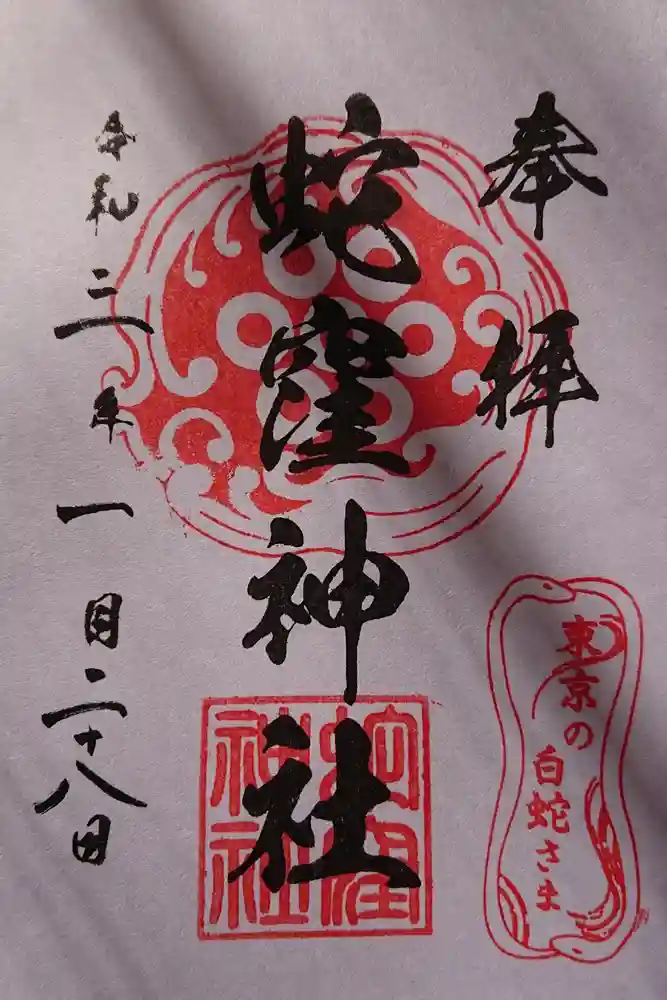 奉拝
蛇窪神社
令和二年一月二十八日
蛇窪神社
東京の
白蛇さま